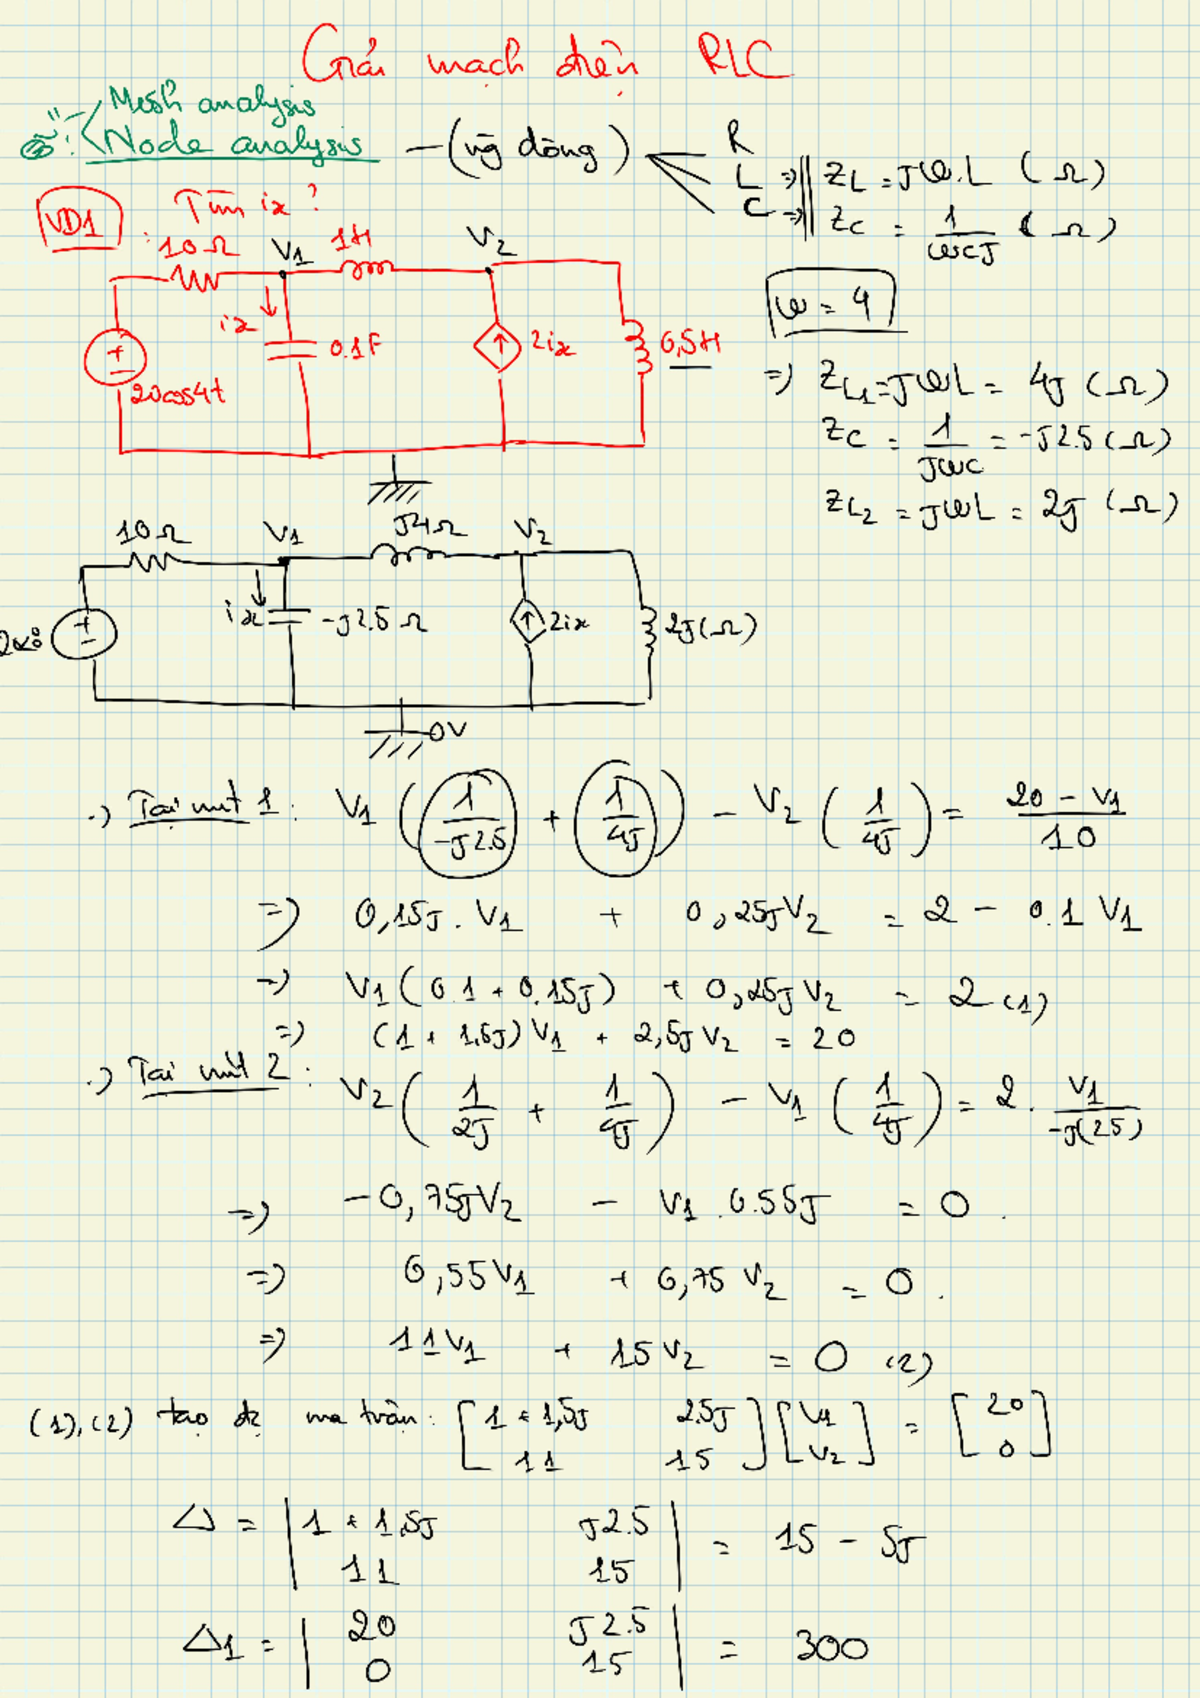 Giải mạch điện RLC
Mesh analysis
Node analysis — (vg dòng)
R
L => Z_L = JωL (Ω)
C => Z_C = 1/(ωCJ) (Ω)
VD1 Tìm ix?
10Ω V1 1H V2
ix 0.1F 2ix 0,5H
20cos4t
ω = 4
=> Z_L1 = JωL = 4J (Ω)
Z_C = 1/(JωC) = -J2.5 (Ω)
Z_L2 = JωL = 2J (Ω)
10Ω V1 J4Ω V2
ix -J2.5Ω 2ix 2J(Ω)
0V
.) Tại nút 1: V1 (1/(-J2.5) + 1/(4J)) - V2 (1/(4J)) = (20 - V1)/10
=> 0,15J. V1 + 0,25J V2 = 2 - 0.1 V1
=> V1 (0.1 + 0.15J) + 0,25J V2 = 2 (1)
=> (1 + 1,5J) V1 + 2,5J V2 = 20
.) Tại nút 2: V2 (1/(2J) + 1/(4J)) - V1 (1/(4J)) = 2. V1/(-J(2.5))
=> -0,75J V2 - V1. 0.55J = 0.
=> 0,55V1 + 0,75 V2 = 0.
=> 11V1 + 15V2 = 0 (2)
(1), (2) tạo đc ma trận: [1 + 1,5J 2.5J; 11 15] [V1; V2] = [20; 0]
Δ = |1 + 1.5J J2.5; 11 15| = 15 - 5J
Δ1 = |20 J2.5; 0 15| = 300